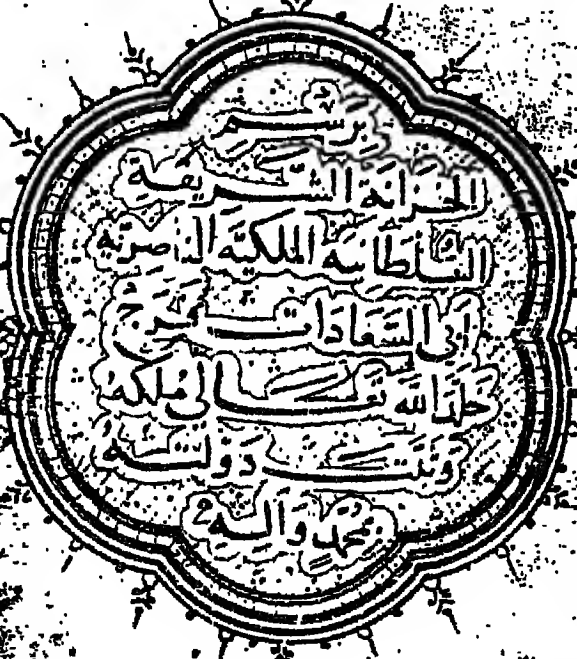 بِرَسْمِ
الخزانة الشَّريفة
السُّلطانية الملكيّة الناصريّة
أبي السَّعادات فرج
خلّد الله تعالى مُلكه
وثبّت دَولته
بمحمّد وآله